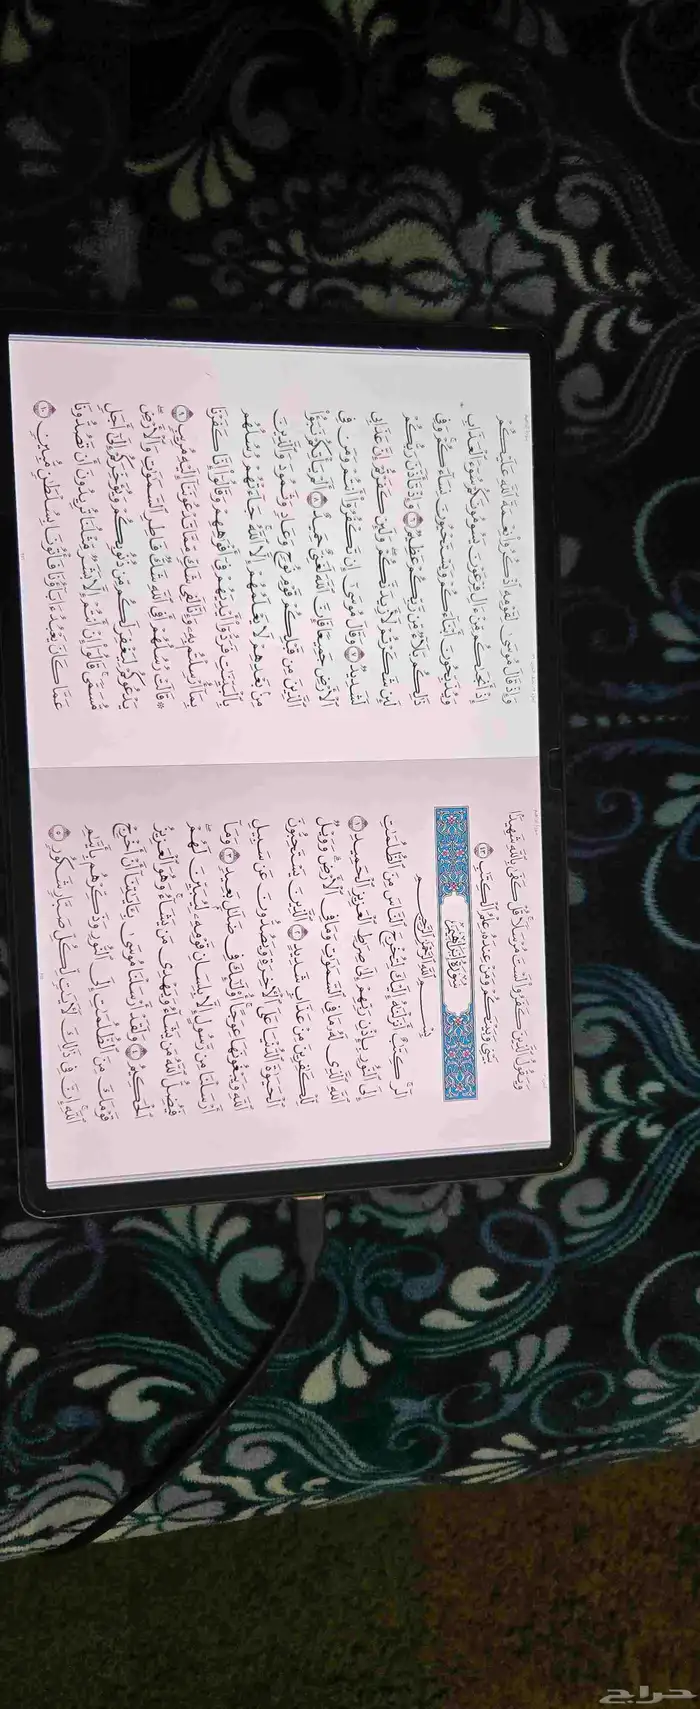 وَيَقُولُ ٱلَّذِينَ كَفَرُواْ لَسْتَ مُرْسَلًا قُلْ كَفَىٰ بِٱللَّهِ شَهِيدًۢا
بَيْنِي وَبَيْنَكُمْ وَمَنْ عِندَهُۥ عِلْمُ ٱلْكِتَٰبِ ٤٣
سُورَةُ إِبْرَاهِيمَ
بِسْمِ ٱللَّهِ ٱلرَّحْمَٰنِ ٱلرَّحِيمِ
الٓر كِتَٰبٌ أَنزَلْنَٰهُ إِلَيْكَ لِتُخْرِجَ ٱلنَّاسَ مِنَ ٱلظُّلُمَٰتِ
إِلَى ٱلنُّورِ بِإِذْنِ رَبِّهِمْ إِلَىٰ صِرَٰطِ ٱلْعَزِيزِ ٱلْحَمِيدِ ١
ٱللَّهِ ٱلَّذِي لَهُۥ مَا فِي ٱلسَّمَٰوَٰتِ وَمَا فِي ٱلْأَرْضِ وَوَيْلٌ
لِّلْكَٰفِرِينَ مِنْ عَذَابٍ شَدِيدٍ ٢ ٱلَّذِينَ يَسْتَحِبُّونَ
ٱلْحَيَوٰةَ ٱلدُّنْيَا عَلَى ٱلْأٓخِرَةِ وَيَصُدُّونَ عَن سَبِيلِ
ٱللَّهِ وَيَبْغُونَهَا عِوَجًا أُوْلَٰٓئِكَ فِي ضَلَٰلٍۭ بَعِيدٍ ٣ وَمَآ
أَرْسَلْنَا مِن رَّسُولٍ إِلَّا بِلِسَانِ قَوْمِهِۦ لِيُبَيِّنَ لَهُمْ
فَيُضِلُّ ٱللَّهُ مَن يَشَآءُ وَيَهْدِي مَن يَشَآءُ وَهُوَ ٱلْعَزِيزُ
ٱلْحَكِيمُ ٤ وَلَقَدْ أَرْسَلْنَا مُوسَىٰ بِـَٔايَٰتِنَآ أَنْ أَخْرِجْ
قَوْمَكَ مِنَ ٱلظُّلُمَٰتِ إِلَى ٱلنُّورِ وَذَكِّرْهُم بِأَيَّىٰمِ
ٱللَّهِ إِنَّ فِي ذَٰلِكَ لَأٓيَٰتٍ لِّكُلِّ صَبَّارٍ شَكُورٍ ٥
وَإِذْ قَالَ مُوسَىٰ لِقَوْمِهِ ٱذْكُرُواْ نِعْمَةَ ٱللَّهِ عَلَيْكُمْ
إِذْ أَنجَىٰكُم مِّنْ ءَالِ فِرْعَوْنَ يَسُومُونَكُمْ سُوٓءَ ٱلْعَذَابِ
وَيُذَبِّحُونَ أَبْنَآءَكُمْ وَيَسْتَحْيُونَ نِسَآءَكُمْ وَفِي
ذَٰلِكُم بَلَآءٌ مِّن رَّبِّكُمْ عَظِيمٌ ٦ وَإِذْ تَأَذَّنَ رَبُّكُمْ
لَئِن شَكَرْتُمْ لَأَزِيدَنَّكُمْ وَلَئِن كَفَرْتُمْ إِنَّ عَذَابِي
لَشَدِيدٌ ٧ وَقَالَ مُوسَىٰٓ إِن تَكْفُرُوٓاْ أَنتُمْ وَمَن فِي
ٱلْأَرْضِ جَمِيعًا فَإِنَّ ٱللَّهَ لَغَنِيٌّ حَمِيدٌ ٨ أَلَمْ يَأْتِكُمْ نَبَؤُاْ
ٱلَّذِينَ مِن قَبْلِكُمْ قَوْمِ نُوحٍ وَعَادٍ وَثَمُودَ وَٱلَّذِينَ
مِنۢ بَعْدِهِمْ لَا يَعْلَمُهُمْ إِلَّا ٱللَّهُ جَآءَتْهُمْ رُسُلُهُم
بِٱلْبَيِّنَٰتِ فَرَدُّوٓاْ أَيْدِيَهُمْ فِيٓ أَفْوَٰهِهِمْ وَقَالُوٓاْ إِنَّا كَفَرْنَا
بِمَآ أُرْسِلْتُم بِهِۦ وَإِنَّا لَفِي شَكٍّ مِّمَّا تَدْعُونَنَآ إِلَيْهِ مُرِيبٍ ٩
۞ قَالَتْ رُسُلُهُمْ أَفِي ٱللَّهِ شَكٌّ فَاطِرِ ٱلسَّمَٰوَٰتِ وَٱلْأَرْضِ
يَدْعُوكُمْ لِيَغْفِرَ لَكُم مِّن ذُنُوبِكُمْ وَيُؤَخِّرَكُمْ إِلَىٰٓ أَجَلٍ
مُّسَمًّى قَالُوٓاْ إِنْ أَنتُمْ إِلَّا بَشَرٌ مِّثْلُنَا تُرِيدُونَ أَن تَصُدُّونَا
عَمَّا كَانَ يَعْبُدُ ءَابَآؤُنَا فَأْتُونَا بِسُلْطَٰنٍ مُّبِينٍ ١٠
حراج